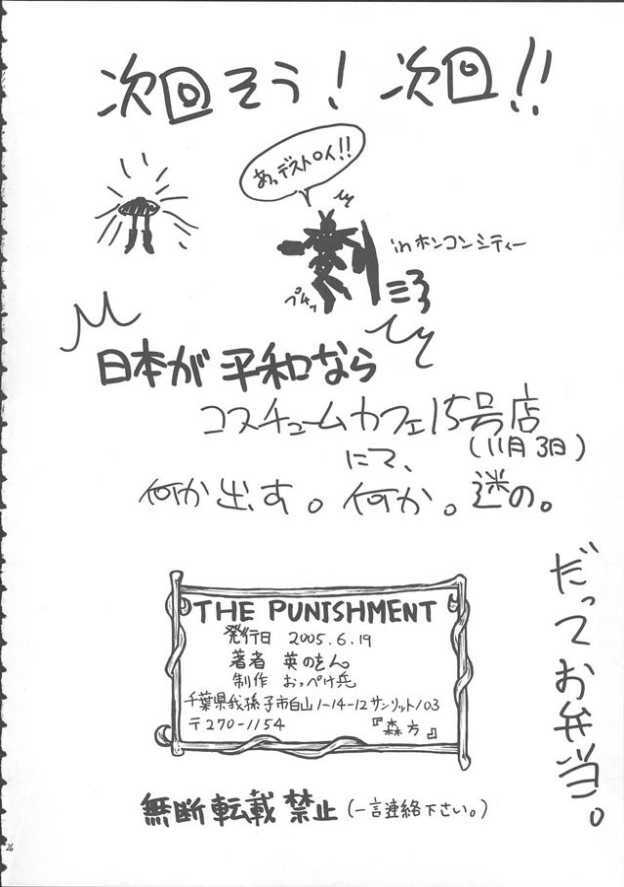 次回そう！次回!!
あっデストロイ!!
inホンコンシティー
プチッ
日本が平和なら
コスチュームカフェ15号店
(11月3日)
にて、
何か出す。何か。謎の。
だってお弁当。
THE PUNISHMENT
発行日 2005.6.19
著者 英のをん。
制作 おっぺけ兵
千葉県我孫子市白山1-14-12サンリット103
〒270-1154 『森方』
無断転載禁止(一言連絡下さい。)